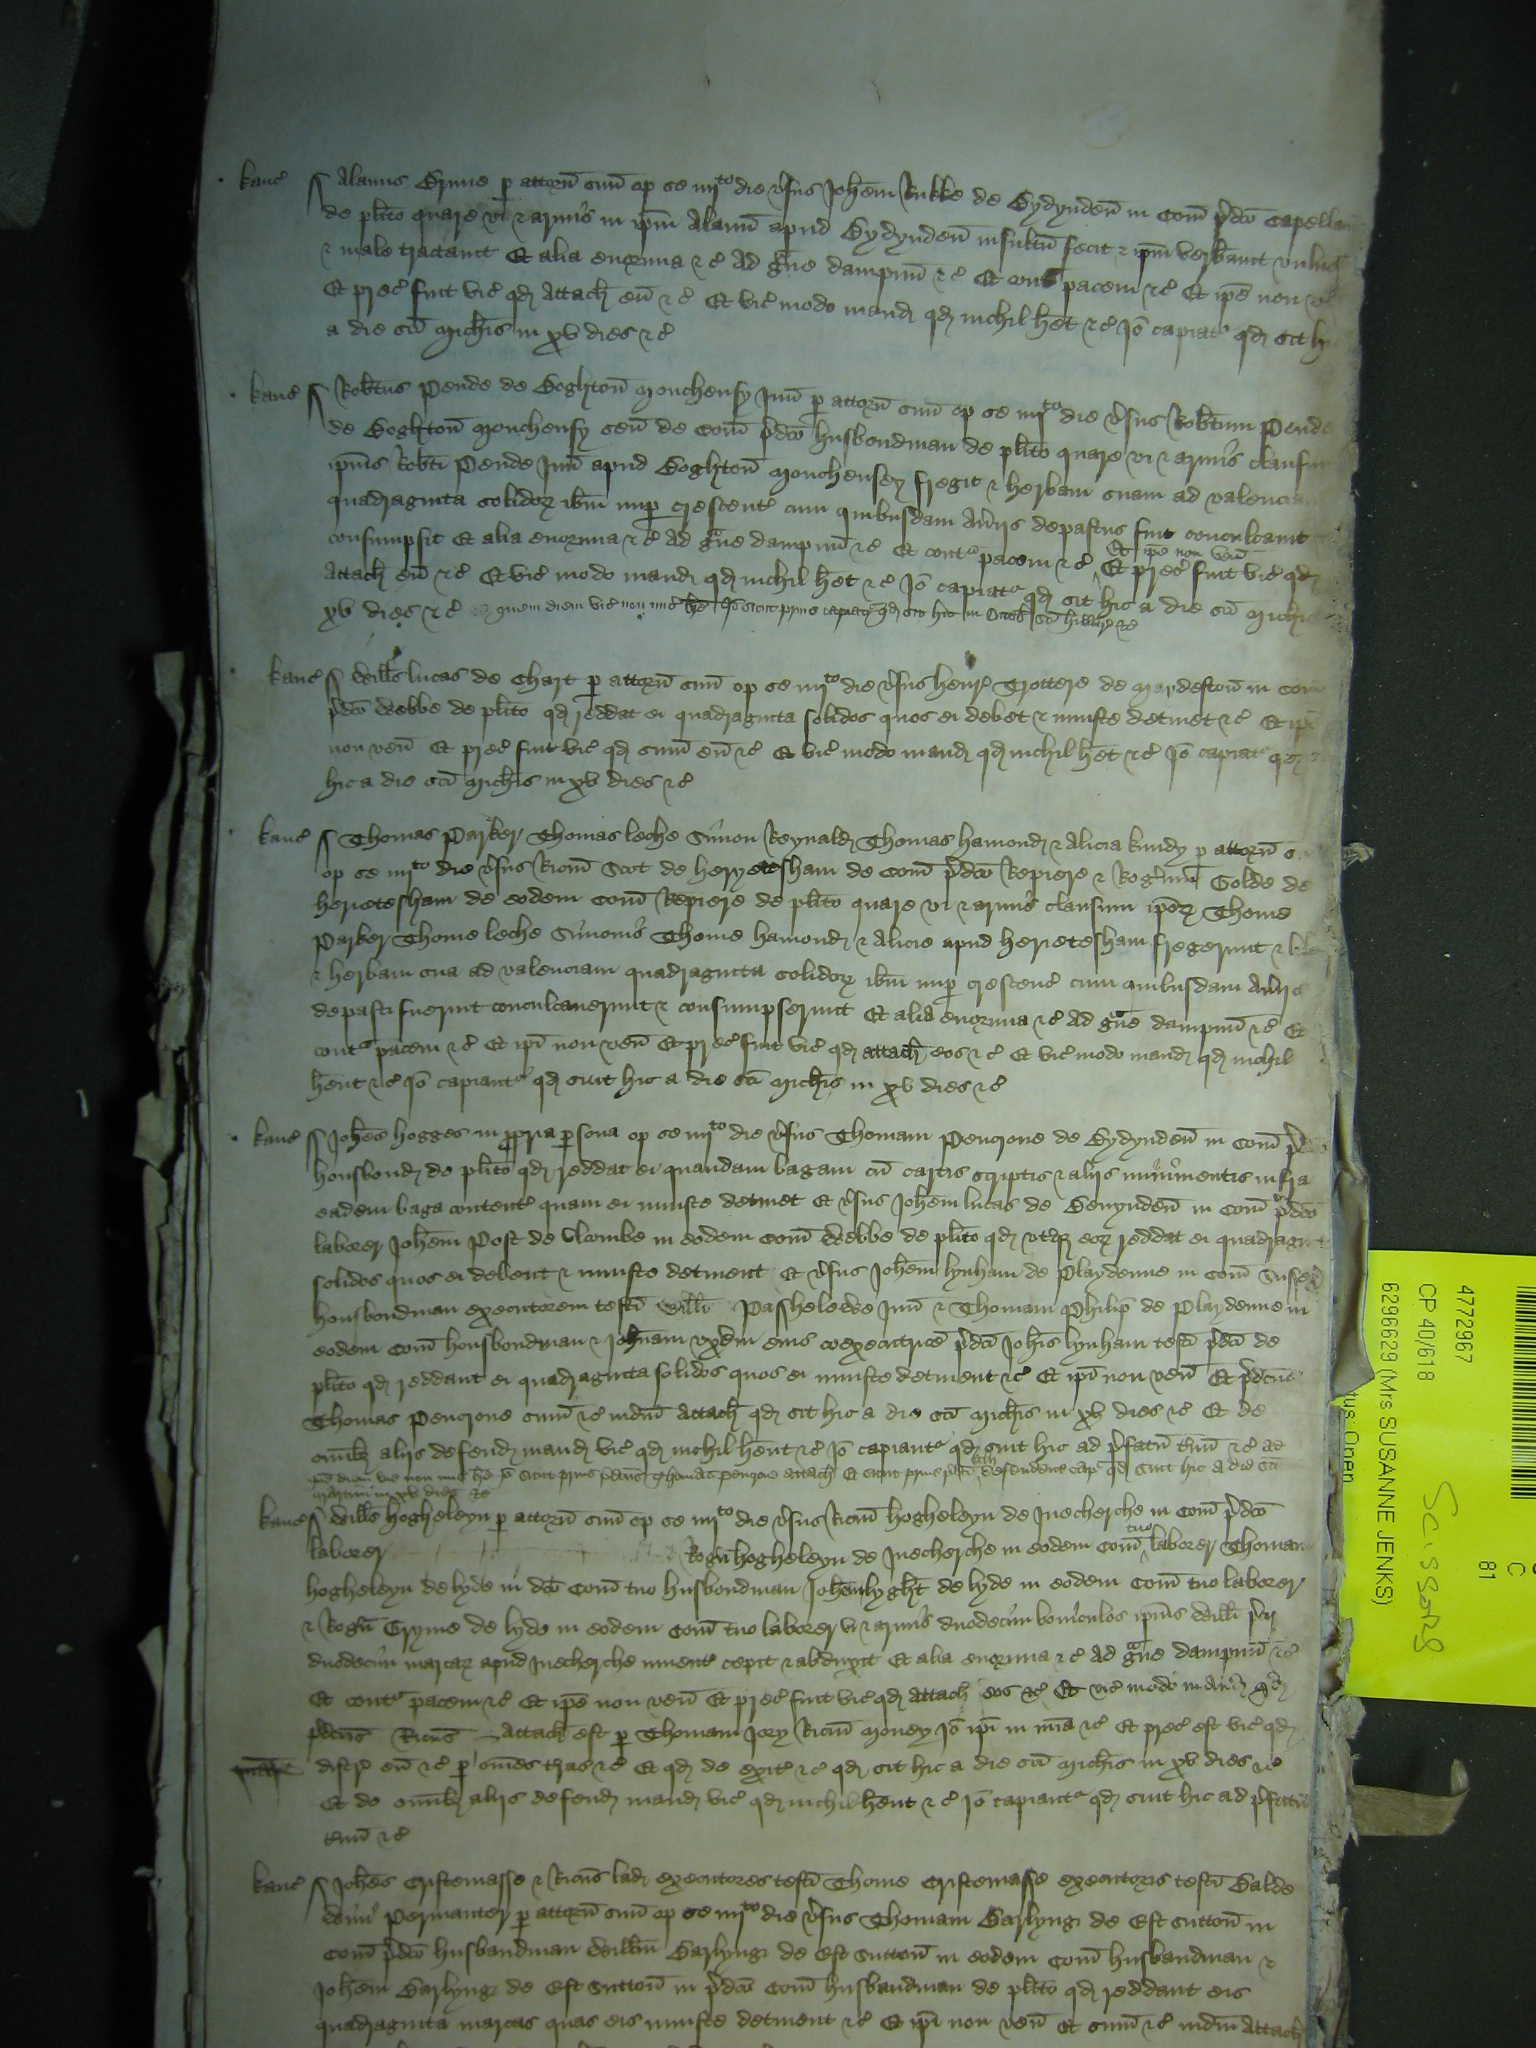 kanc Alanus Brune p attorn suu op se iiijto die vsus Johem Kukke de Bydynden in Com pdco Capellan
de plito quare vi & armis in ipm Alanu apud Bydynden insultu fecit & ipm verbavit vuln
& male tractavit Et alia enormia &c Ad gve dampnu &c Et cont pacem &c Et ipe non ve
Et prec fuit vic qd Attach eu &c Et vic modo mand qd nichil het &c Jo capiat qd sit h
a die sci Michis in xv dies &c
kanc Robtus Pende de Boghton Monchensy Jun p attorn suu op se iiijto die vsus Robtum Pende
de Boghton Monchensy sen de Com pdco husbondman de plito quare vi & armis clausu
ipius Robti Pende Jun apud Boghton Monchensey fregit & herbam suam ad valenciam
quadraginta solidor ibm nup crescent cum quibusdam Aviis depastus fuit conculcavit
consumpsit Et alia enormia &c Ad gve dampnu &c Et cont pacem &c Et ipe non ven Et prec fuit vic qd
Attach eu &c Et vic modo mand qd nichil het &c Jo capiat qd sit hic a die sci Michis
xv dies &c quem diem vic non mis bre Jo sicut prius capiat qd sit hic in Octab sci Hillar &c
kanc Wills lucas de Chart p attorn suu op se iiijto die vsus henr Trottere de Maydeston in Com
pdco Webbe de plito qd reddat ei quadraginta solidos quos ei debet & iniuste detinet &c Et ipe
non ven Et prec fuit vic qd sum eu &c Et vic modo mand qd nichil het &c Jo capiat qd
hic a die sci Michis in xv dies &c
kanc Thomas Parker Thomas leche Simon Reynald Thomas hamond & Alicia kindy p attorn s
op se iiijto die vsus Ricm Scot de heryetesham de Com pdco Repiere & Rogum Golde de
herietesham de eodem Com Repiere de plito quare vi & armis clausum ipor Thome
Parker Thome leche Simonis Thome hamond & Alicie apud herietesham fregerunt & bla
& herbam sua ad valenciam quadraginta solidor ibm nup crescenc cum quibusdam Aviis
depasti fuerunt conculcaverunt & consumpserunt Et alia enormia &c Ad gve dampnu &c Et
cont pacem &c Et ipi non ven Et prec fuit vic qd attach eos &c Et vic modo mand qd nichil
hent &c Jo capiant qd sint hic a die sci Michis in xv dies &c
kanc Johes hogges in ppria psona op se iiijto die vsus Thomam Pencrone de Bydynden in Com pdco
housbond de plito qd reddat ei quandam bagam cu cartis scriptis & aliis munimentis infra
eadem baga content quam ei iniuste detinet Et vsus Johem lucas de Benynden in Com pdco
laborer Johem Post de Vlcombe in eodem Com Webbe de plito qd vtq eor reddat ei quadragint
solidos quos ei debent & iniuste detinent Et vsus Johem lynham de Playdenne in Com Sussex
housbondman executorem testi Willi Passhelewe Jun & Thomam Philip de Playdenne in
eodem Com housbondman & Johnam vxem eius coexecutrice pdci Johis lynham testi pdci de
plito qd reddant ei quadraginta solidos quos ei iniuste detinent &c Et ipi non ven Et pdcus
Thomas Pencrone sum &c iudm Attach qd sit hic a die sci Michis in xv dies &c Et de
omib aliis defend mand vic qd nichil hent &c Jo capiant qd sint hic ad pfatu tmu &c ad
que diem vic non mis bre Jo sicut prius pdcus Thomas Pencrone attach Et sicut prius defendentes cap qd sint hic a die sci
martini in xv dies &c
kanc Wills hogheleyn p attorn suu op se iiijto die vsus Ricm hogheleyn de Juecherche in Com pdco
laborer Rogm hogheleyn de Juecherche in eodem Com tuo laborer Thomam
hogheleyn de lyde in dco Com tuo husbondman Johem lyght de lyde in eodem Com tuo laborer
& Rogm Gryme de lyde in eodem Com tuo laborer vi & armis duodecim boviculos ipius Willi pcij
duodecim marcar apud Juecherche invent cepit & abduxit Et alia enormia &c Ad gve dampnu &c
Et cont pacem &c Et ipe non ven Et prec fuit vic qd attach eos &c Et vic modo mand qd
pdcus Ricus Attach est p Thomam Jory Ricm Money Jo ipi in mia &c Et prec est vic qd
distr eu &c p omes tras &c Et qd de exit &c qd sit hic a die sci Michis in xv dies &c
Et de omib aliis defend mand vic qd nichil hent &c Jo capiant qd sint hic ad pfatu
tmu &c
kanc Johes Cristemasse & Ricus lad executores testi Thome Cristemasse executoris testi Balde
Wini Permanter p attorn suu op se iiijto die vsus Thomam Barlyng de Est Sutton in
Com pdco husbandman Willm Barlyng de Est Sutton in eodem Com husbandman &
Johem Barlyng de Est Sutton in pdco Com husbandman de plito qd reddant eis
quadraginta marcas quas eis iniuste detinent &c Et ipi non ven Et sum &c iudm Attach
4772967
CP 40/618
6296629 (Mrs SUSANNE JENKS)
C
81
Scissors